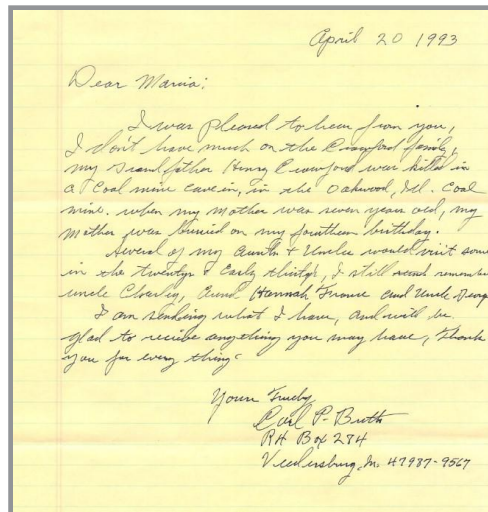 April 20 1993
Dear Marcia:
I was pleased to hear from you,
I don't have much on the Crawford family,
my Grandfather Henry Crawford was killed in
a coal mine cavein, in the Oakwood, Ill. coal
mine. when my mother was seven years old, my
mother was buried on my fourthen birthday.
Several of my aunts + Uncles would visit some
in the twentys & early thirtys, I still remember
uncle Charley, Aunt Hannah and Uncle
I am sending what I have, and will be
glad to recieve anything you may have, Thank
you for every thing.
Yours Truely
Carl P.
R#4 Box 274
Veedersburg, In. 47987-9567